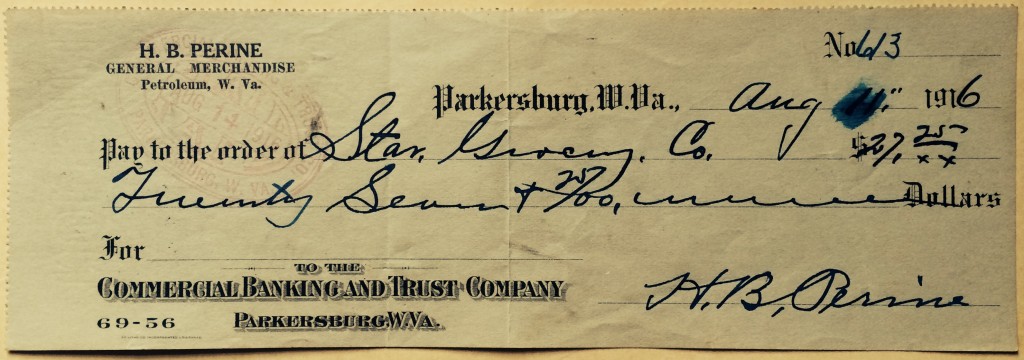 No 613
H. B. PERINE
GENERAL MERCHANDISE
Petroleum, W. Va.
Parkersburg, W. Va., Aug 11" 1916
Pay to the order of Star. Grocery. Co. $27, 25 xx
Twenty Seven + 25/00, Dollars
For
TO THE
COMMERCIAL BANKING AND TRUST COMPANY
69-56 PARKERSBURG, W. VA.
H. B. Perine